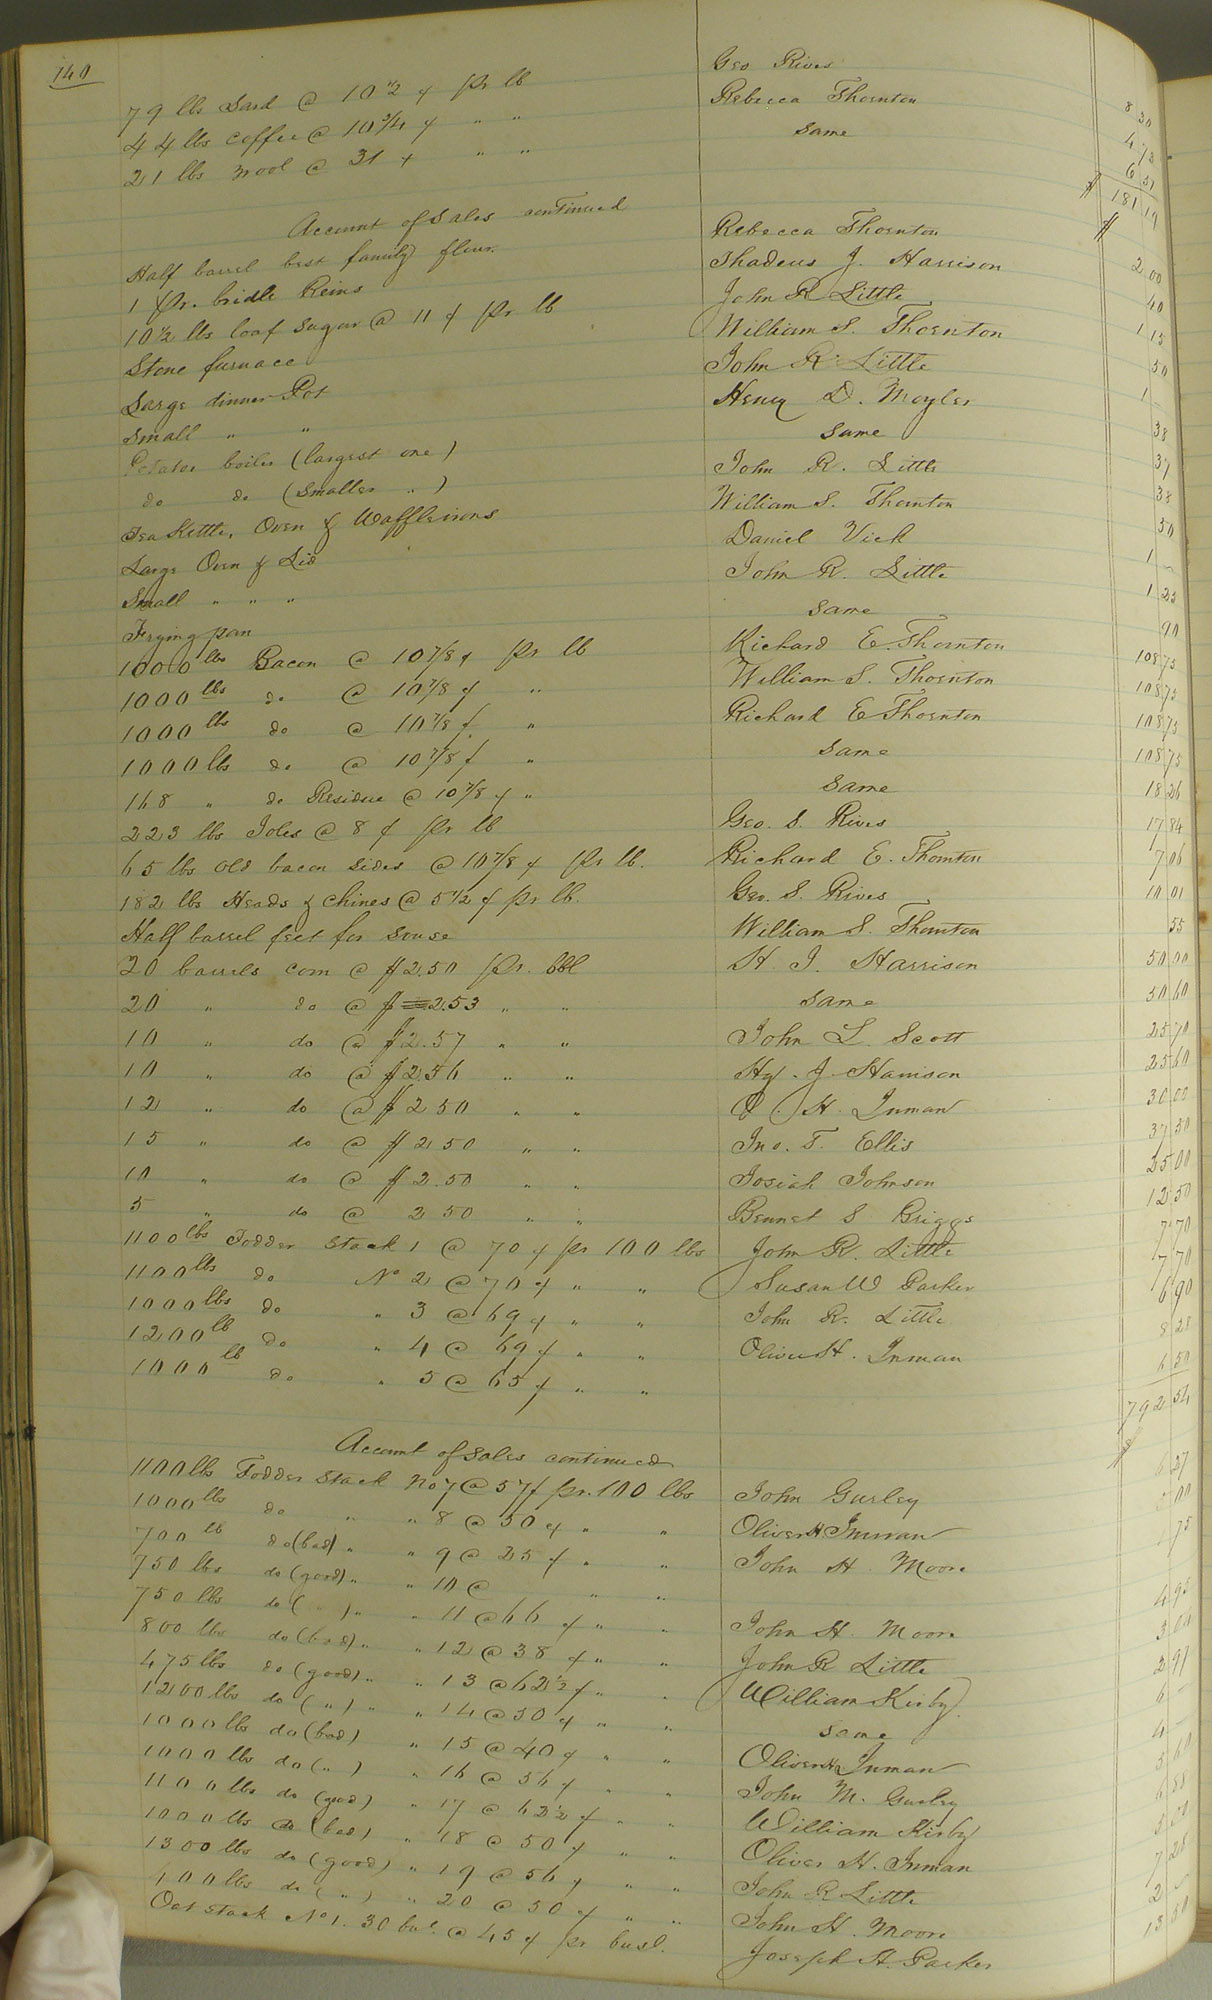 140
79 lbs Lard @ 10 1/2 ¢ pr lb Geo Rives 8 30
44 lbs Coffee @ 10 3/4 ¢ " " Rebecca Thornton 4 73
21 lbs wool @ 31 ¢ " " same 6 51
$ 181 19
Account of Sales continued $
Half barrel best family flour Rebecca Thornton 2 00
1 pr. bridle Reins Thadeus J. Harrison 40
10 1/2 lbs loaf Sugar @ 11 ¢ pr lb John R Little 1 15
Stone furnace William S. Thornton 50
Large dinner Pot John R Little 1
Small " " Henry D. Moyler 38
Potatoe boiler (largest one) same 37
do do (smaller ") John R. Little 38
Tea Kettle, Oven & Waffleirons William S. Thornton 50
Large Oven & Lid Daniel Vick 1
Small " " " John R. Little 1 25
Frying pan same 90
1000 lbs Bacon @ 10 7/8 ¢ pr lb Richard E. Thornton 108 75
1000 lbs do @ 10 7/8 ¢ " William S. Thornton 108 75
1000 lbs do @ 10 7/8 ¢ " Richard E Thornton 108 75
1000 lbs do @ 10 7/8 ¢ " same 108 75
168 " do Residue @ 10 7/8 ¢ " same 18 26
223 lbs Joles @ 8 ¢ pr lb Geo. S. Rives 17 84
65 lbs old bacon sides @ 10 7/8 ¢ pr lb. Richard E. Thornton 7 06
182 lbs Heads & Chines @ 5 1/2 ¢ pr lb. Geo. S. Rives 10 01
Half barrel feet for souse William S. Thornton 55
20 barrels corn @ $2.50 pr. bbl H. J. Harrison 50 00
20 " do @ $ 2.53 " " same 50 60
10 " do @ $2.57 " " John L. Scott 25 70
10 " do @ $2 56 " " Hy. J. Harrison 25 60
12 " do @ $2 50 " " O. H. Inman 30 00
15 " do @ $2 50 " " Jno. T. Ellis 37 50
10 " do @ $2.50 " " Josiah Johnson 25 00
5 " do @ 2 50 " " Bennet S Briggs 12 50
1100 lbs Fodder Stack 1 @ 70 ¢ pr 100 lbs John R. Little 7 70
1100 lbs do No 2 @ 70 ¢ " " Susan W Parker 7 70
1000 lbs do " 3 @ 69 ¢ " " John R. Little 6 90
1200 lb do " 4 @ 69 ¢ " " Oliver H. Inman 8 28
1000 lb do " 5 @ 65 ¢ " " 6 50
792 54
Account of Sales continued
1100 lbs Fodder Stack No 7 @ 57 ¢ pr. 100 lbs John Gurley 6 27
1000 lbs do " " 8 @ 50 ¢ " " Oliver H Inman 00
700 lb do (bad) " " 9 @ 25 ¢ " " John H Moore 75
750 lbs do (good) " " 10 @ " "
750 lbs do ( " ) " " 11 @ 66 ¢ " " John H. Moore 4 95
800 lbs do (bad) " " 12 @ 38 ¢ " " John R Little 3 04
475 lbs do (good) " " 13 @ 62 1/2 ¢ " " William Kirby 2 97
1200 lbs do ( " ) " " 14 @ 50 ¢ " " same 6
1000 lbs do (bad) " 15 @ 40 ¢ " " Oliver H Inman 4
1000 lbs do ( " ) " 16 @ 56 ¢ " " John M. Gurley 5 60
1100 lbs do (good) " 17 @ 62 1/2 ¢ " " William Kirby 6 88
1000 lbs do (bad) " 18 @ 50 ¢ " " Oliver H. Inman 5 00
1300 lbs do (good) " 19 @ 56 ¢ " " John R Little 7 28
400 lbs do ( " ) " 20 @ 50 ¢ " " John H. Moore 2
Oat stack No 1. 30 bus. @ 45 ¢ pr busl. Joseph H. Parker 13 50